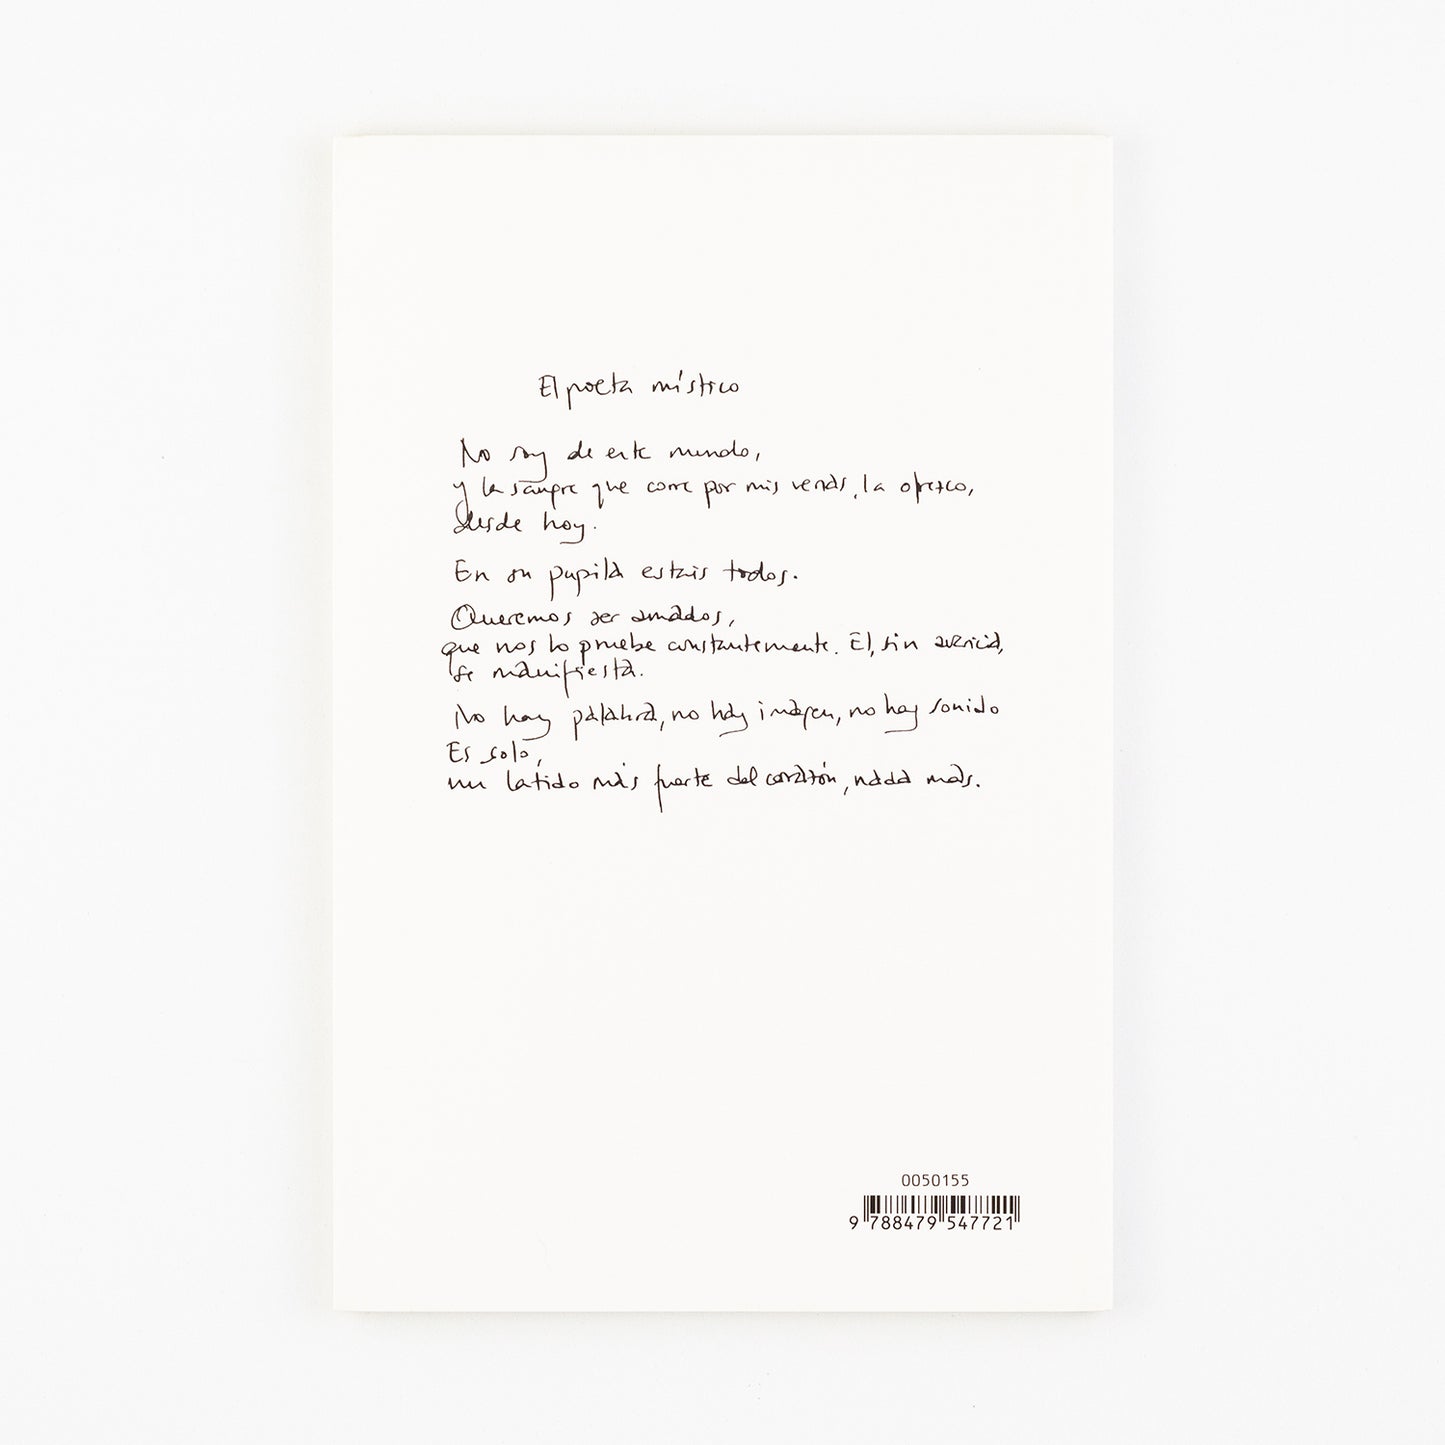 El poeta místico
No soy de este mundo,
y la sangre que corre por mis venas, la ofrezco,
desde hoy.
En su pupila estais todos.
Queremos ser amados,
que nos lo pruebe constantemente. El, sin avaricia,
se manifiesta.
No hay palabra, no hay imagen, no hay sonido
Es solo,
un latido más fuerte del corazón, nada más.
0050155
9 788479 547721